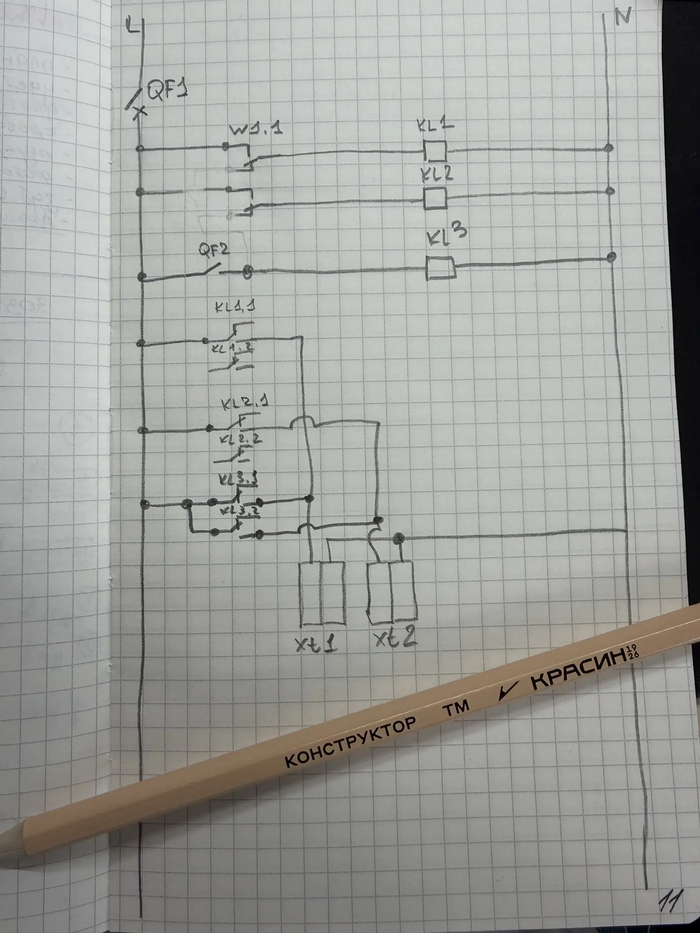 L N
QF1
W1.1 KL1
KL2
QF2 KL3
KL1.1
KL1.2
KL2.1
KL2.2
KL3.1
KL3.2
xt1 xt2
КОНСТРУКТОР ТМ КРАСИН 1926
11